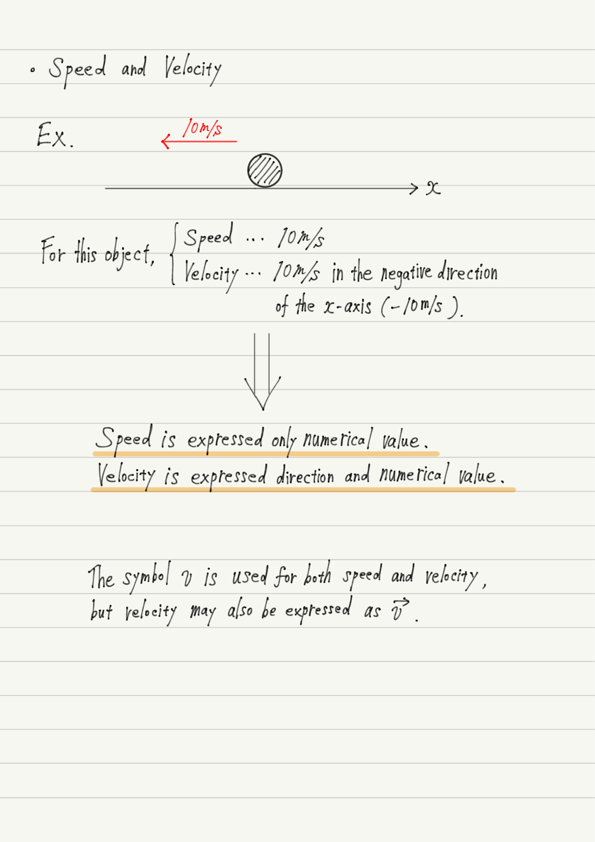 • Speed and Velocity
Ex.
10m/s
x
For this object, { Speed ... 10m/s
Velocity ... 10m/s in the negative direction
of the x-axis (-10m/s).
Speed is expressed only numerical value.
Velocity is expressed direction and numerical value.
The symbol v is used for both speed and velocity,
but velocity may also be expressed as v⃗.